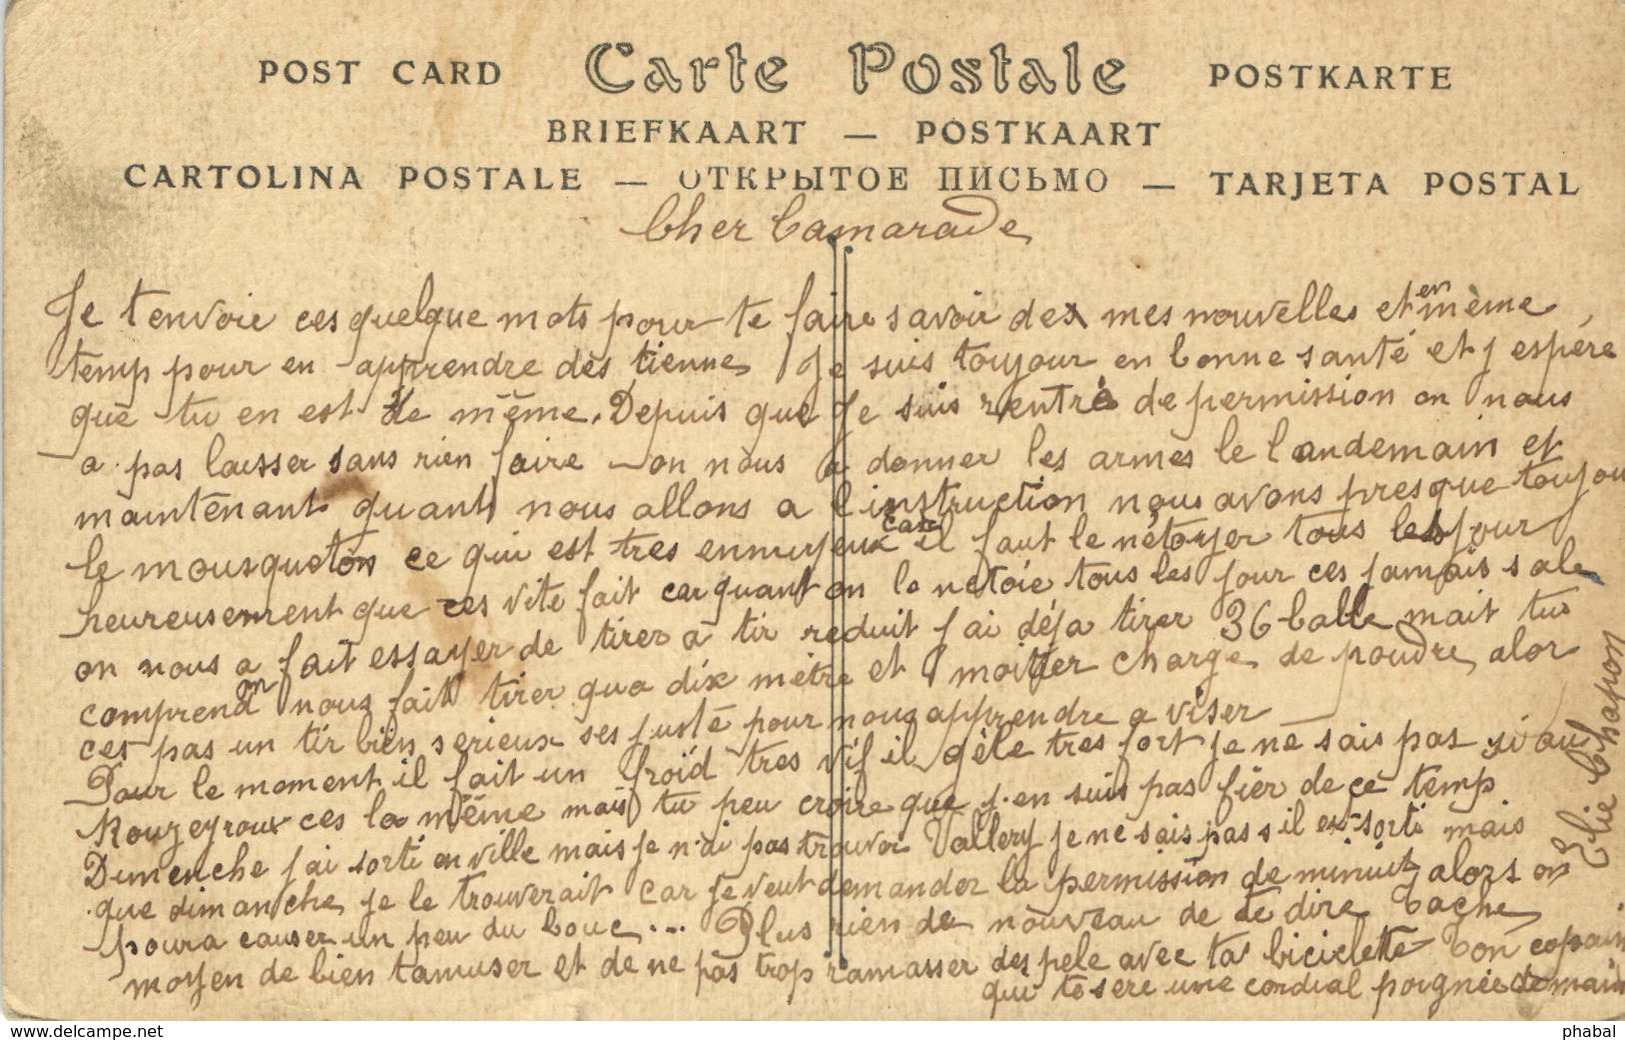 POST CARD Carte Postale POSTKARTE
BRIEFKAART — POSTKAART
CARTOLINA POSTALE — ОТКРЫТОЕ ПИСЬМО — TARJETA POSTAL
Cher Camarade
Je t'envoie ces quelque mots pour te faire savoir des mes nouvelles et en mème
temp pour en apprendre des tienne Je suis toujour en bonne santé et j espère
que tu en est de même. Depuis que Je suis rentré de permission on nous
a pas laisser sans rien faire on nous a donner les armes le landemain et
maintenant quant nous allons a l'instruction nous avons presque toujou
le mousqueton ce qui est tres ennuyeux car il faut le netoyer tous les jour
heureusement que ces vite fait car quant on le netoie tous les jour ces jamais sale
on nous a fait essayer de tirer a tir reduit j ai déja tirer 36 balle mait tu
comprend on nous fait tirer qua dix mètre et moitier charge de poudre alor
ces pas un tir bien serieux ses juste pour nous apprendre a viser
Pour le moment il fait un froid tres vif il gèle tres fort je ne sais pas si au
Rouzeyroux ces la même mais tu peu croire que j'en suis pas fier de ce temp
Dimenche j ai sorti en ville mais je n'di pas trouvoi Vallery je ne sais pas s il est sorti mais
que dimanche je le trouverait car je veut demander la permission de minuit alors on
poura causer un peu du bouc... Plus rien de nouveau de te dire Tache
moyen de bien tamuser et de ne pas trop ramasser des pele avec ta biciclette Ton copain
qui te sere une cordial poignée de main
Elie Chapon
www.delcampe.net
phabal